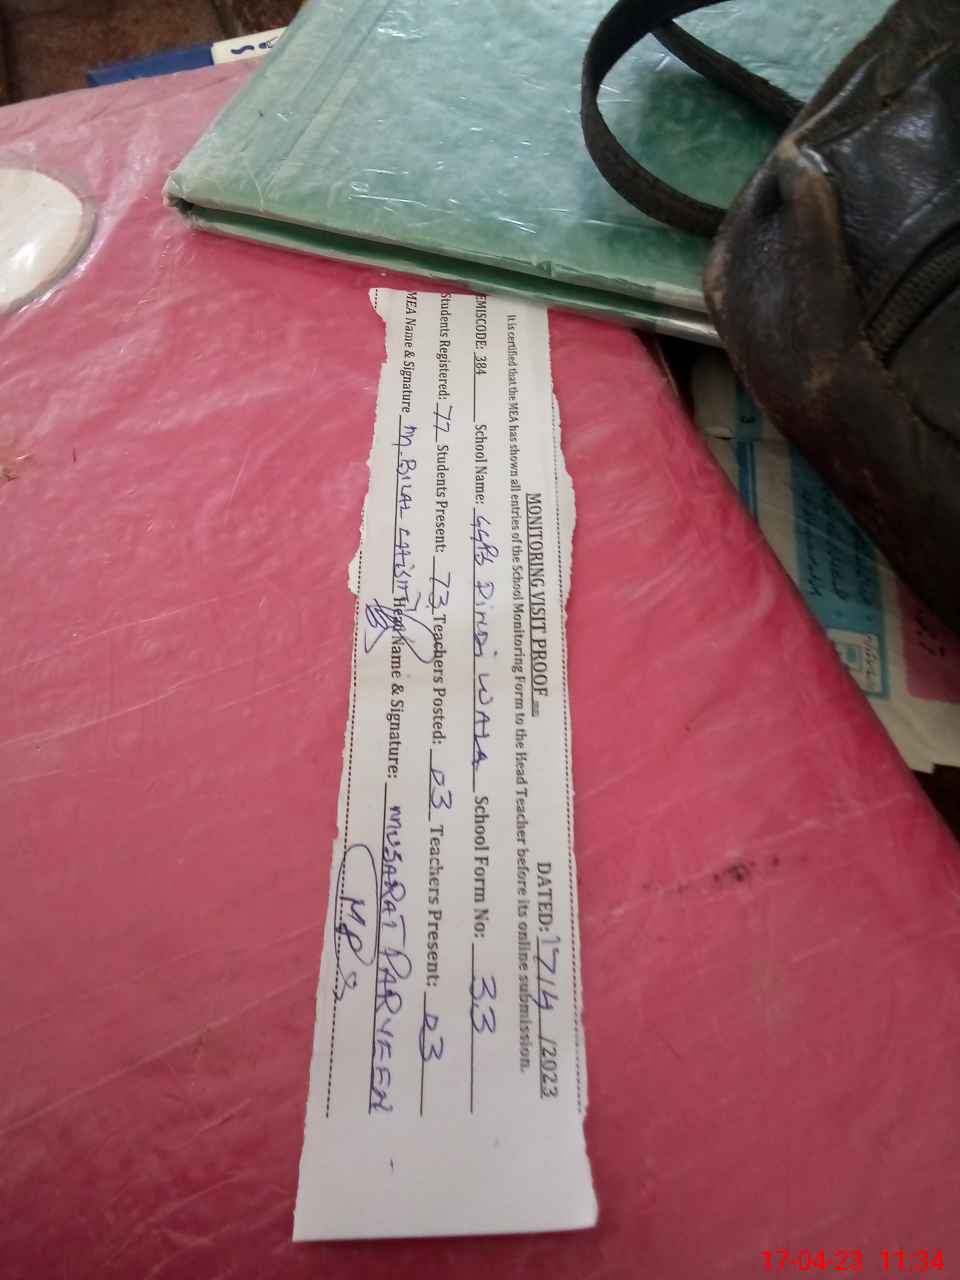 MONITORING VISIT PROOF DATED: 17/4/2023
It is certified that the MEA has shown all entries of the School Monitoring Form to the Head Teacher before its online submission.
EMISCODE: 384 School Name: GGPS Pindi WALA School Form No: 33
Students Registered: 77 Students Present: 73 Teachers Posted: 03 Teachers Present: 03
MEA Name & Signature M. BILAL Head Name & Signature: MUSARAT PARVEEN
MP
17-04-23 11:34